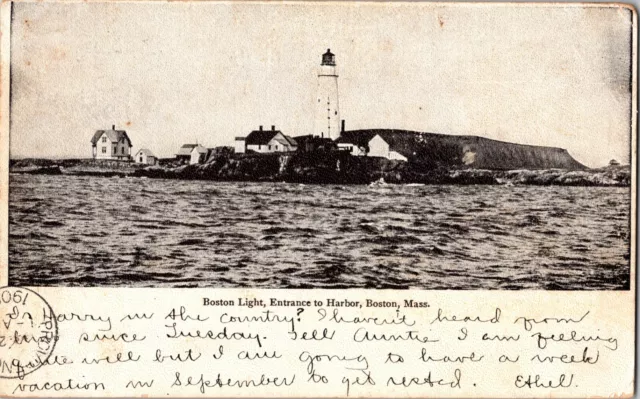 Boston Light, Entrance to Harbor, Boston, Mass.
Is Harry in the country? I haven't heard from
him since Tuesday. Tell Auntie I am feeling
quite well but I am going to have a week
vacation in September to get rested. Ethel.